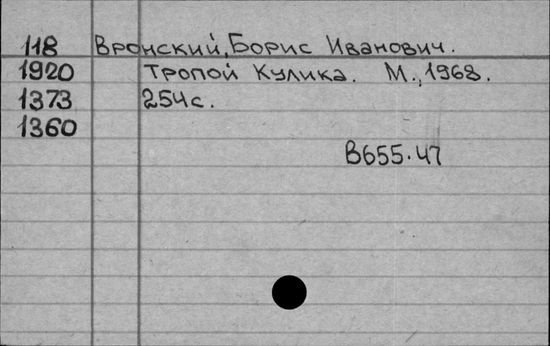 118 Вронский, Борис Иванович.
1920 Тропой Кулика. М., 1968.
1373 254с.
1360
В655.47